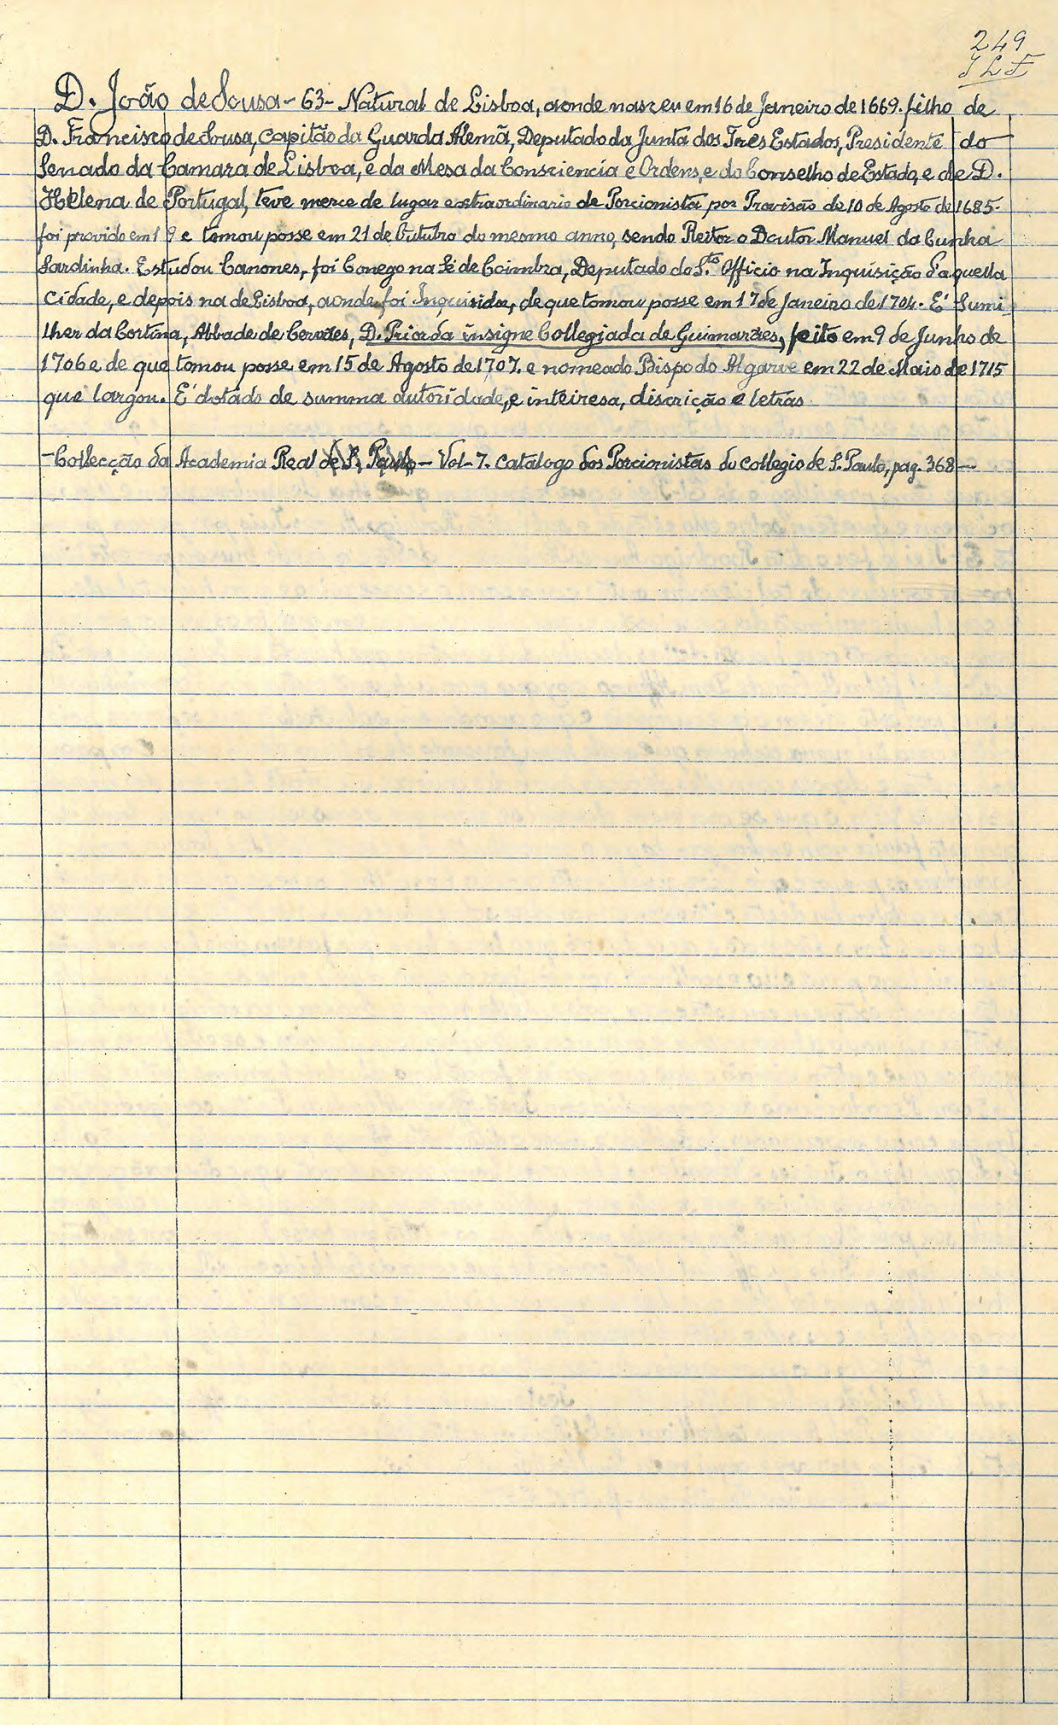 249
JLF
D. João de Sousa - 63 - Natural de Lisboa, aonde nasceu em 16 de Janeiro de 1669. filho de
D. Francisco de Sousa, Capitão da Guarda Alemã, Deputado da Junta dos Tres Estados, Presidente do
Senado da Camara de Lisboa, e da Mesa da Consciencia e Ordens, e do Conselho de Estado, e de D.
Helena de Portugal, teve merce de lugar extraordinario de Porcionista por Provisão de 10 de Agosto de 1685.
foi provido em 19 e tomou posse em 21 de Outubro do mesmo anno, sendo Reitor o Doutor Manuel da Cunha
Sardinha. Estudou Canones, foi Conego na Sé de Coimbra, Deputado do S.to Officio na Inquisição d'aquella
Cidade, e depois na de Lisboa, aonde foi Inquisidor, de que tomou posse em 17 de Janeiro de 1704. É Sumi
lher da Cortina, Abbade de D. Prior da insigne Collegiada de Guimarães, feito em 9 de Junho de
1706 e de que tomou posse em 15 de Agosto de 1707. e nomeado Bispo do Algarve em 22 de Maio de 1715
que largou. É dotado de summa autoridade, e inteiresa, discrição e letras.
- Collecção da Academia Real de S. Paulo - Vol - 7. Catálogo dos Porcionistas do Collegio de S. Paulo, pag. 368 -